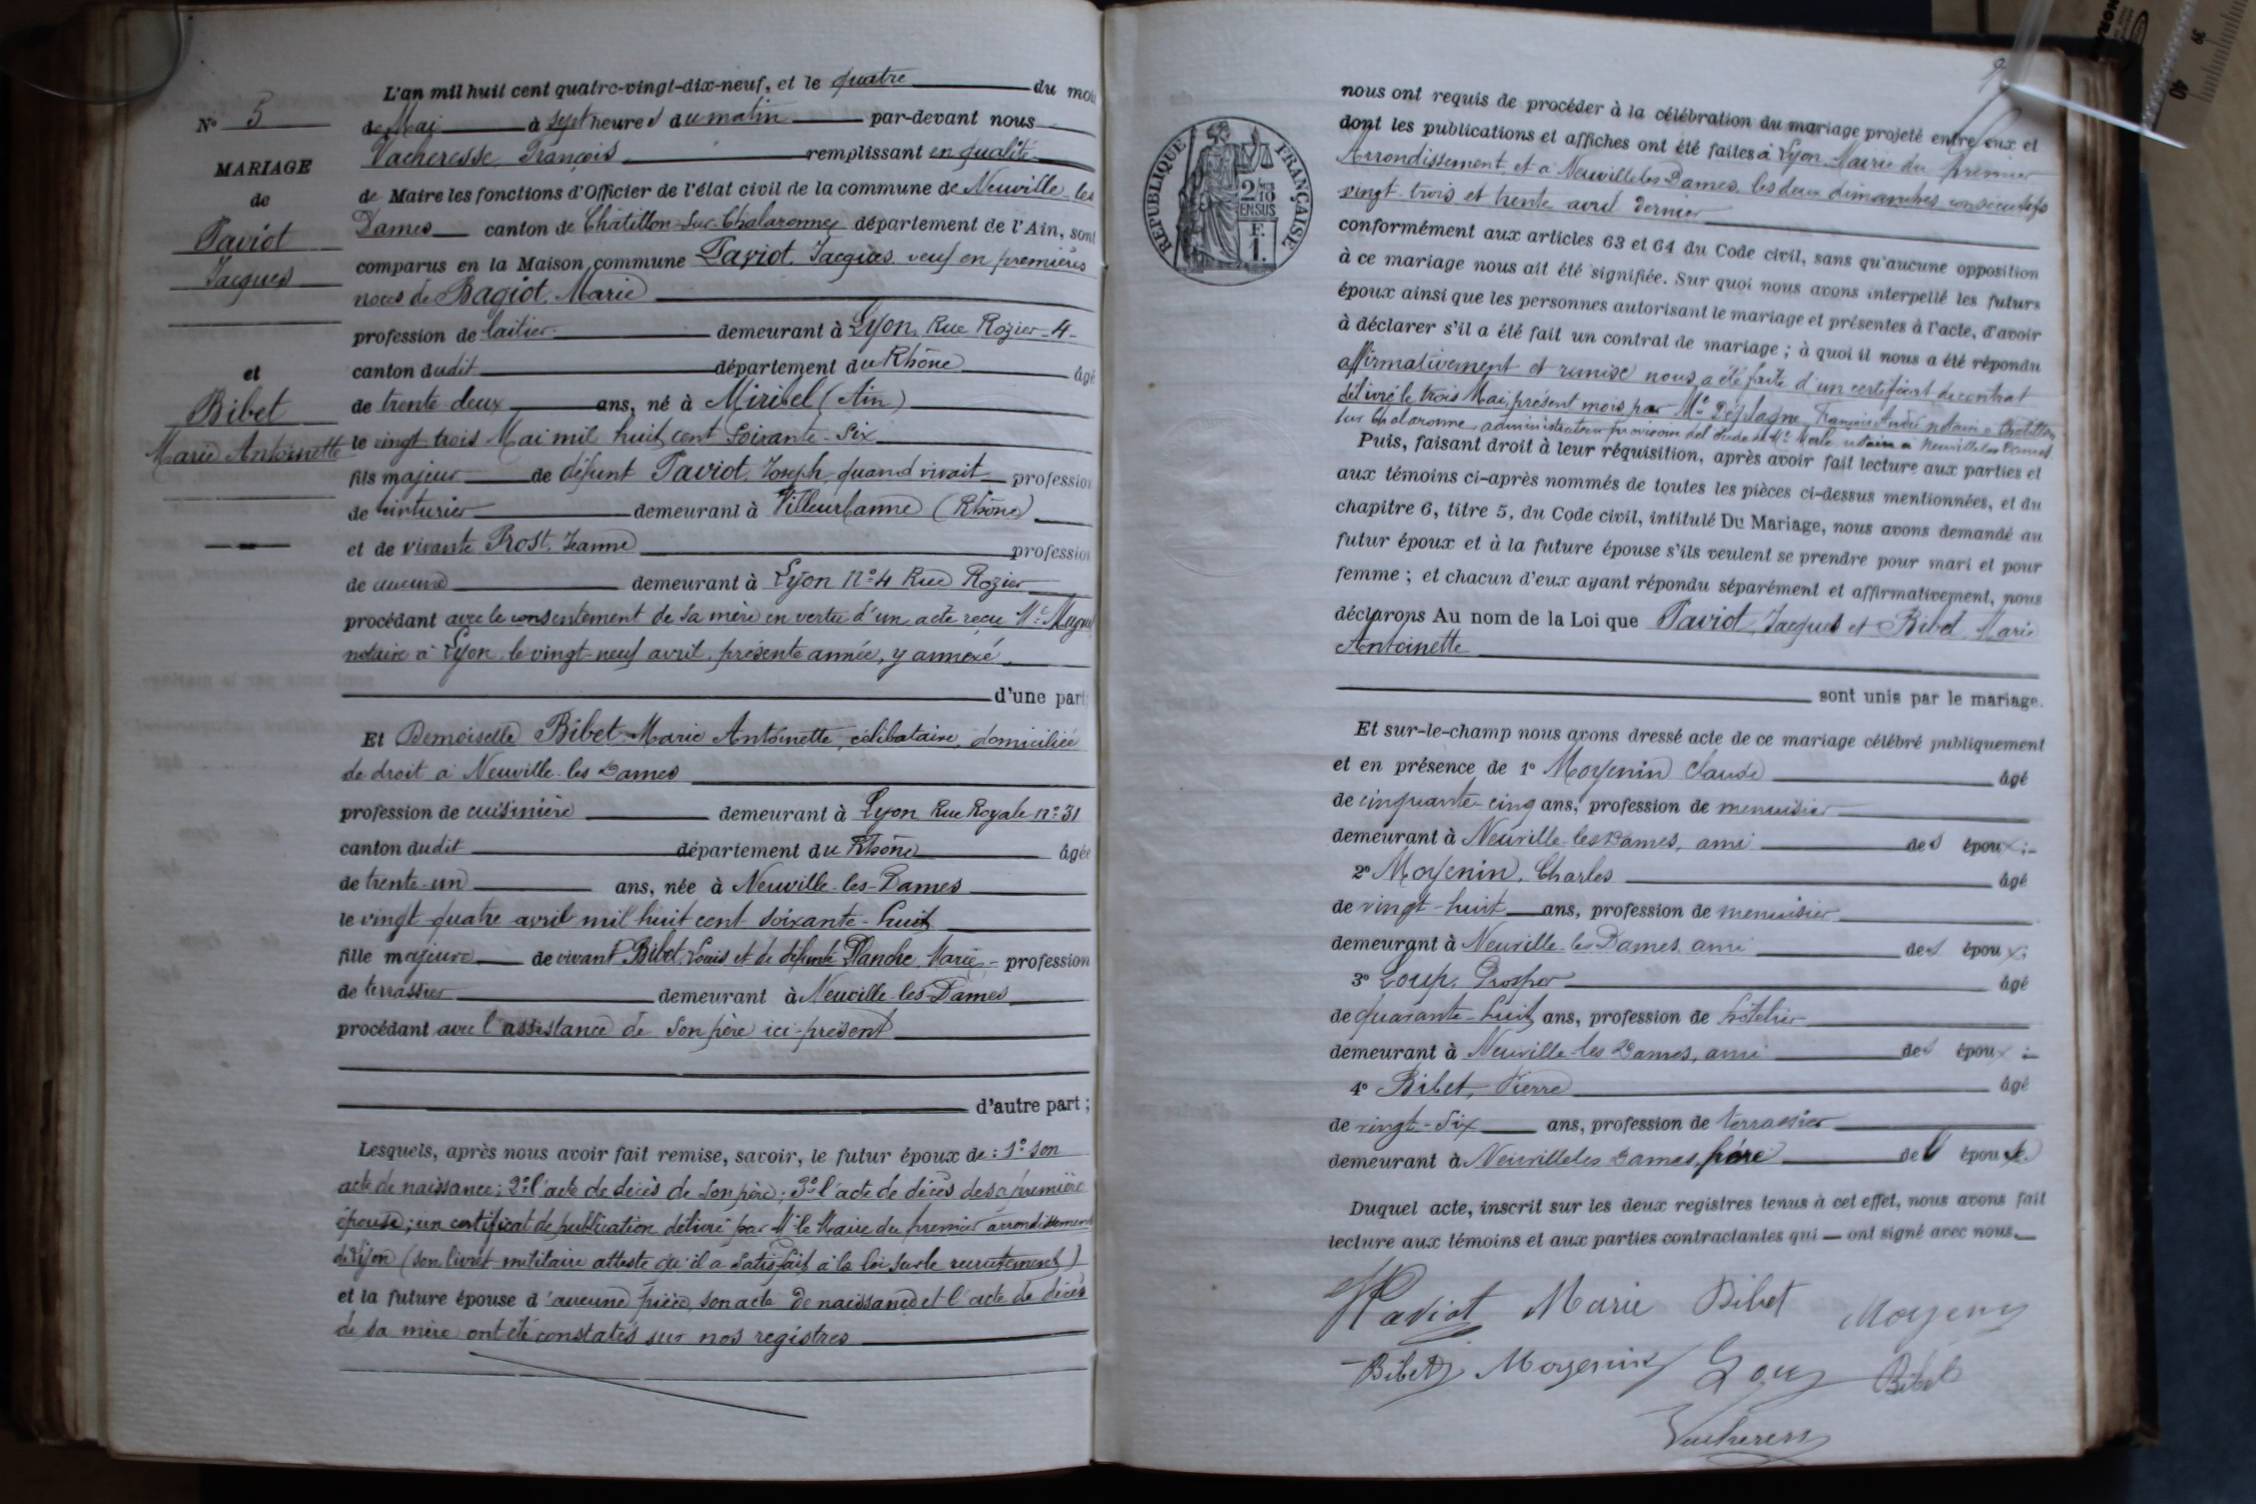 N° 5
MARIAGE
de
Paviot
Jacques
et
Bibet
Marie Antoinette
L'an mil huit cent quatre-vingt-dix-neuf, et le quatre du mois
de Mai à sept heures du matin par-devant nous
Vacheresse François remplissant en qualité
de Maire les fonctions d'Officier de l'état civil de la commune de Neuville-les
Dames canton de Châtillon-sur-Chalaronne département de l'Ain, sont
comparus en la Maison commune Paviot, Jacques veuf en premières
noces de Bagiot, Marie
profession de laitier demeurant à Lyon, Rue Rozier-4-
canton dudit département du Rhône âgé
de trente deux ans, né à Miribel (Ain)
le vingt trois Mai mil huit cent soixante-six
fils majeur de défunt Paviot, Joseph quand vivait profession
de teinturier demeurant à Villeurbanne (Rhône)
et de vivante Prost, Jeanne profession
de aucune demeurant à Lyon n° 4 Rue Rozier
procédant avec le consentement de sa mère en vertu d'un acte reçu Me
notaire à Lyon le vingt-neuf avril, présente année, y annexé
d'une part;
Et Demoiselle Bibet Marie Antoinette, célibataire, domiciliée
de droit à Neuville-les Dames
profession de cuisinière demeurant à Lyon Rue Royale n° 31
canton dudit département du Rhône âgée
de trente-un ans, née à Neuville-les-Dames
le vingt quatre avril mil huit cent soixante-huit
fille majeure de vivant Bibet, Louis et de défunte Planche, Marie - profession
de terrassier demeurant à Neuville-les-Dames
procédant avec l'assistance de son père ici-présent
d'autre part;
Lesquels, après nous avoir fait remise, savoir, le futur époux de: 1° son
acte de naissance; 2° l'acte de décès de son père; 3° l'acte de décès de sa première
épouse; un certificat de publication délivré par Mr le Maire du premier arrondissement
de Lyon (son livret militaire atteste qu'il a satisfait à la loi sur le recrutement)
et la future épouse d'aucune pièce, son acte de naissance et l'acte de décès
de sa mère ont été constatés sur nos registres
RÉPUBLIQUE FRANÇAISE
2/10
EN SUS
F.
1.
nous ont requis de procéder à la célébration du mariage projeté entre eux et
dont les publications et affiches ont été faites à Lyon Mairie du premier
Arrondissement, et à Neuville les Dames, les deux dimanches consécutifs
vingt-trois et trente avril dernier
conformément aux articles 63 et 64 du Code civil, sans qu'aucune opposition
à ce mariage nous ait été signifiée. Sur quoi nous avons interpellé les futurs
époux ainsi que les personnes autorisant le mariage et présentes à l'acte, d'avoir
à déclarer s'il a été fait un contrat de mariage; à quoi il nous a été répondu
affirmativement et remise nous a été faite d'un certificat de contrat
délivré le trois Mai, présent mois par Me Desplagne, François notaire à Châtillon
sur Chalaronne administrateur provisoire de l'étude de Me Merle notaire à Neuville les Dames
Puis, faisant droit à leur réquisition, après avoir fait lecture aux parties et
aux témoins ci-après nommés de toutes les pièces ci-dessus mentionnées, et du
chapitre 6, titre 5, du Code civil, intitulé Du Mariage, nous avons demandé au
futur époux et à la future épouse s'ils veulent se prendre pour mari et pour
femme; et chacun d'eux ayant répondu séparément et affirmativement, nous
déclarons Au nom de la Loi que Paviot, Jacques et Bibet, Marie
Antoinette
sont unis par le mariage.
Et sur-le-champ nous avons dressé acte de ce mariage célébré publiquement
et en présence de 1° Moyenin Claude âgé
de cinquante-cinq ans, profession de menuisier
demeurant à Neuville-les Dames, ami des époux;
2° Moyenin, Charles âgé
de vingt-huit ans, profession de menuisier
demeurant à Neuville-les Dames, ami des époux;
3° Loup, Prosper âgé
de quarante-huit ans, profession de hôtelier
demeurant à Neuville les Dames, ami des époux;
4° Bibet, Pierre âgé
de vingt-six ans, profession de terrassier
demeurant à Neuville les Dames, frère de l'épouse
Duquel acte, inscrit sur les deux registres tenus à cet effet, nous avons fait
lecture aux témoins et aux parties contractantes qui — ont signé avec nous.
Paviot Marie Bibet Moyenin
Bibet Moyenin Loup Bibet
Vacheresse